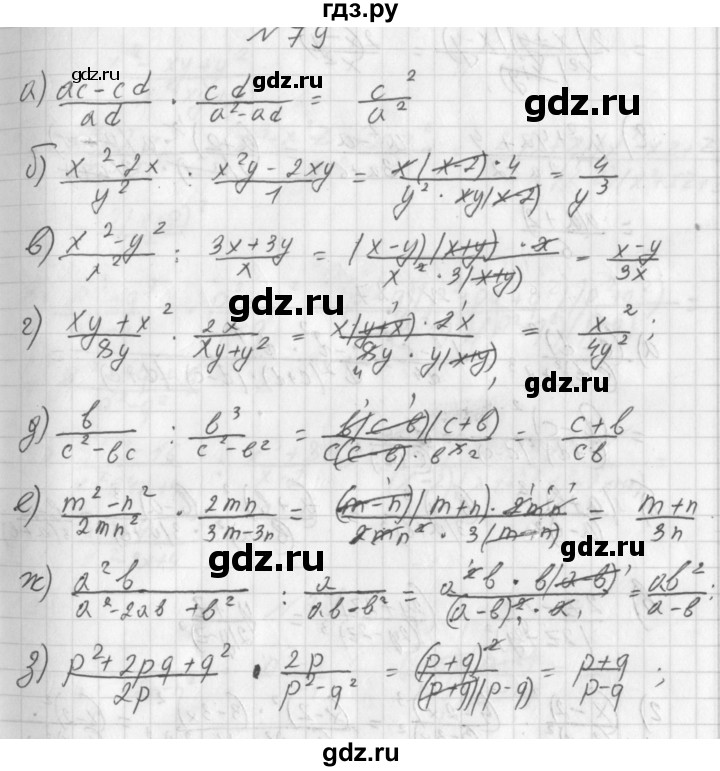 гдз.ру
№ 79
gdz.ru
а) (ac-cd)/(ad) · (cd)/(a²-ad) = c²/a²
gdz.ru
б) (x²-2x)/y² · (x²y-2xy)/1 = (x(x-2)·4)/(y²·xy(x-2)) = 4/y³
в) (x²-y²)/x² : (3x+3y)/x = ((x-y)(x+y)·x)/(x²·3(x+y)) = (x-y)/3x
gdz.ru
г) (xy+x²)/8y · 2x/(xy+y²) = (x(y+x)·2x)/(8y·y(x+y)) = x²/4y²;
gdz.ru
д) в/(c²-вc) : в³/(c²-в²) = (в(c-в)(c+в))/(c(c-в)·в³2) = (c+в)/св
gdz.ru
е) (m²-n²)/2mn² · 2mn/(3m-3n) = ((m-n)(m+n)·2mn)/(2mn²·3(m-n)) = (m+n)/3n
gdz.ru
gdz.ru
ж) a²в/(a²-2aв+в²) : a/(aв-в²) = (a²в·в(a-в))/((a-в)²·a) = aв²/(a-в);
з) (p²+2pq+q²)/2p · 2p/(p²-q²) = (p+q)²/((p+q)(p-q)) = (p+q)/(p-q);
gdz.ru
gdz.ru